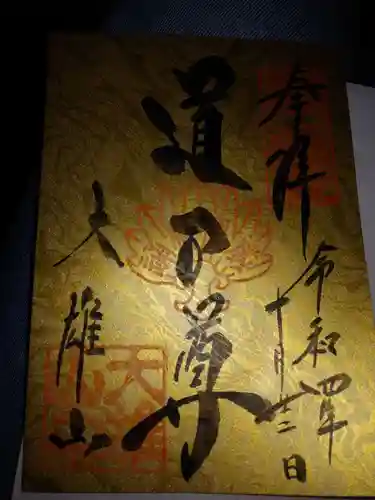 奉拝
令和四年
十月廿二日
道了尊
大雄山